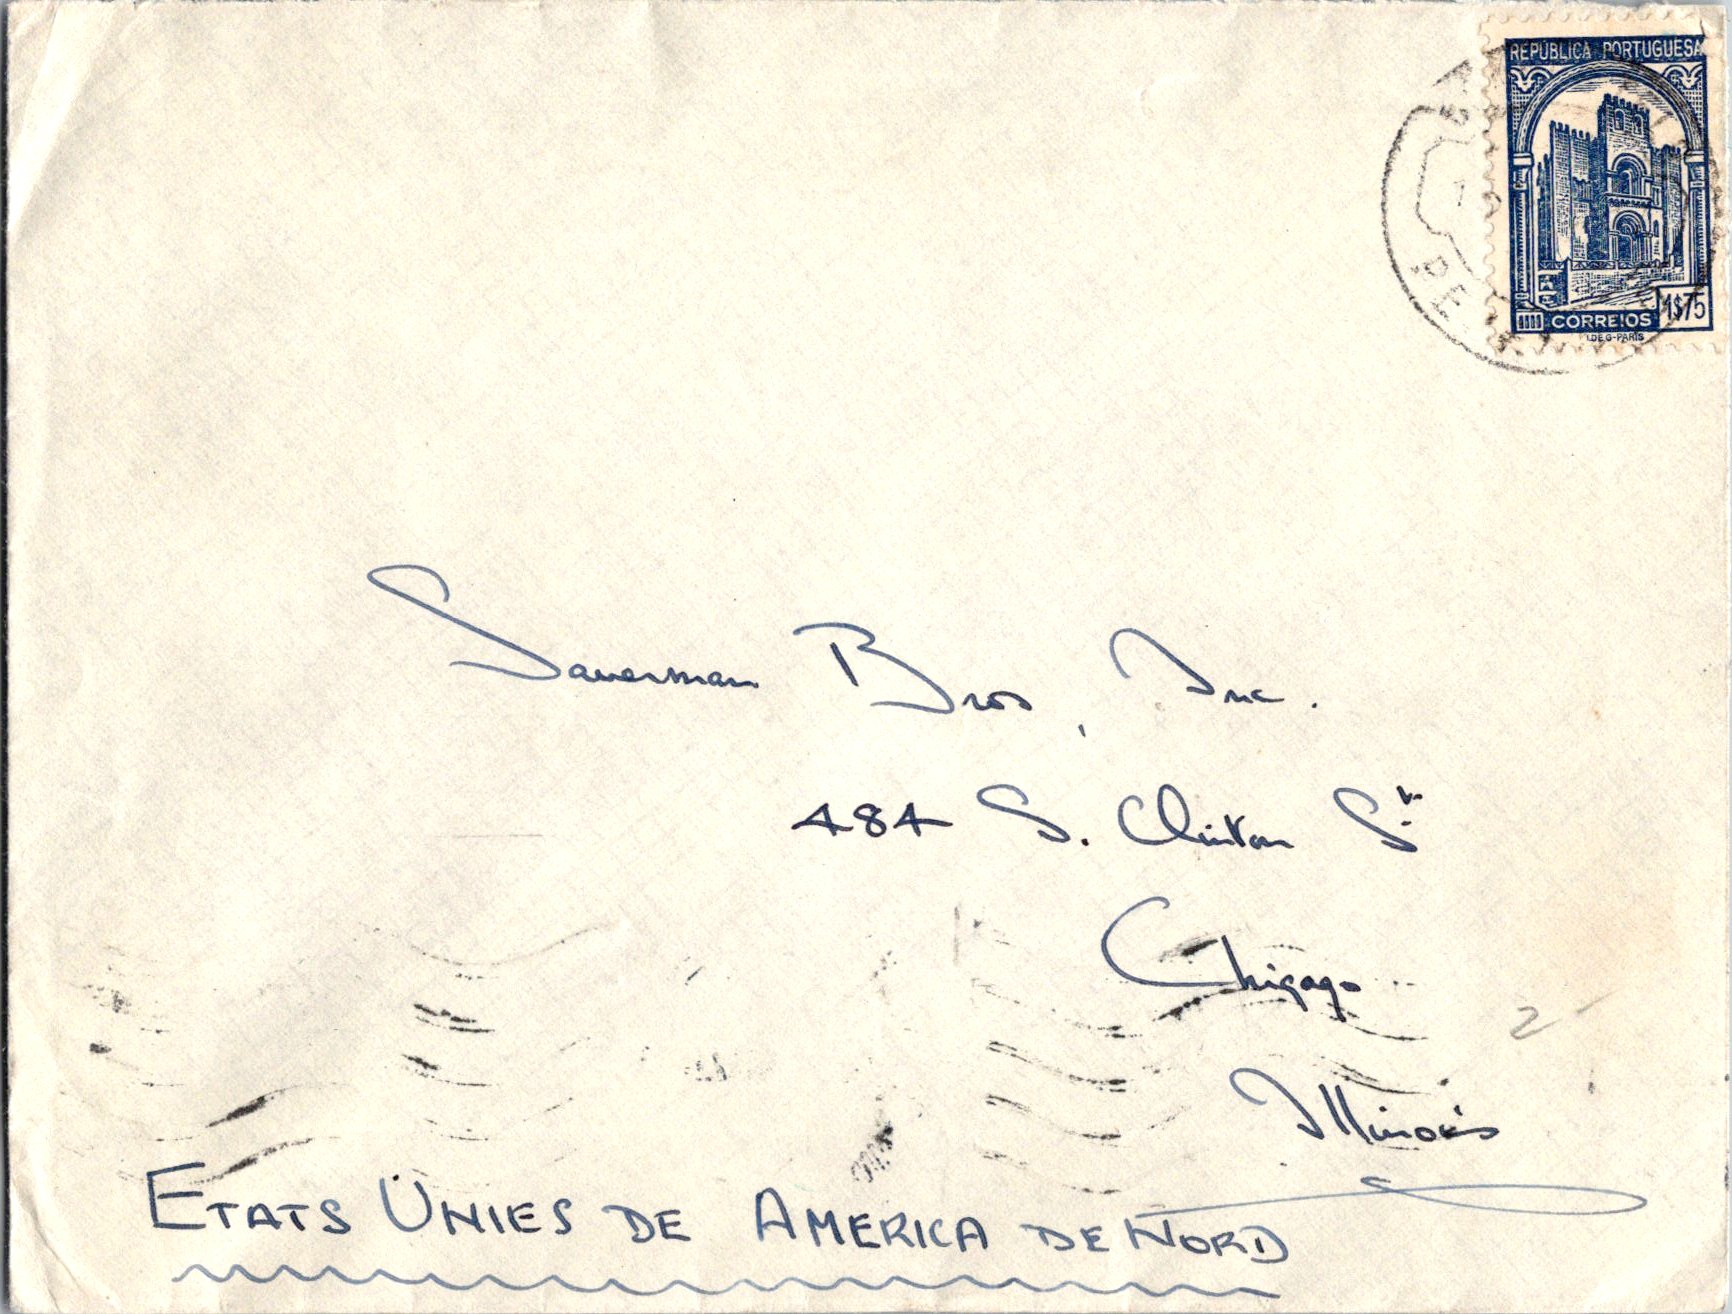 REPÚBLICA PORTUGUESA
CORREIOS 1$75
I.DE G-PARIS
Sauerman Bros, Inc.
484 S. Clinton St
Chigago
2
Illinois
ETATS UNIES DE AMERICA DE NORD